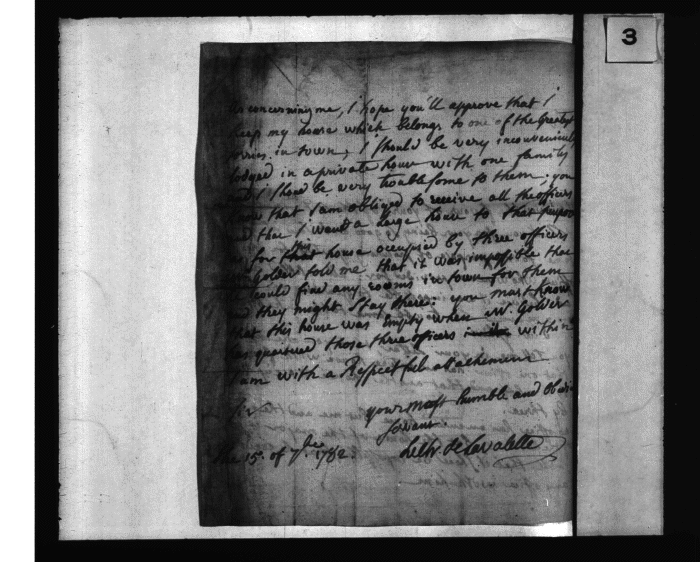 3
As concerning me, i hope you'll approve that i
keep my house which belongs to one of the Greatest
torries in town, I should be very inconvenienly
lodged in a private house with one family
and i should be very troublesome to them; you
know that I am obliged to receive all the officers
and that i want a large house to that purpose
for that house occupied by three officers
holder told me that it was impossible that
could find any rooms in town for them
and they might stay there. you must know
that this house was Empty when Mr. Golver
has quartered those three officers within
I am with a Respectful attachement
Sir
your most humble and Obedi
servant.
the 15. of 7bre 1782.
Le Chr. De Lavalette